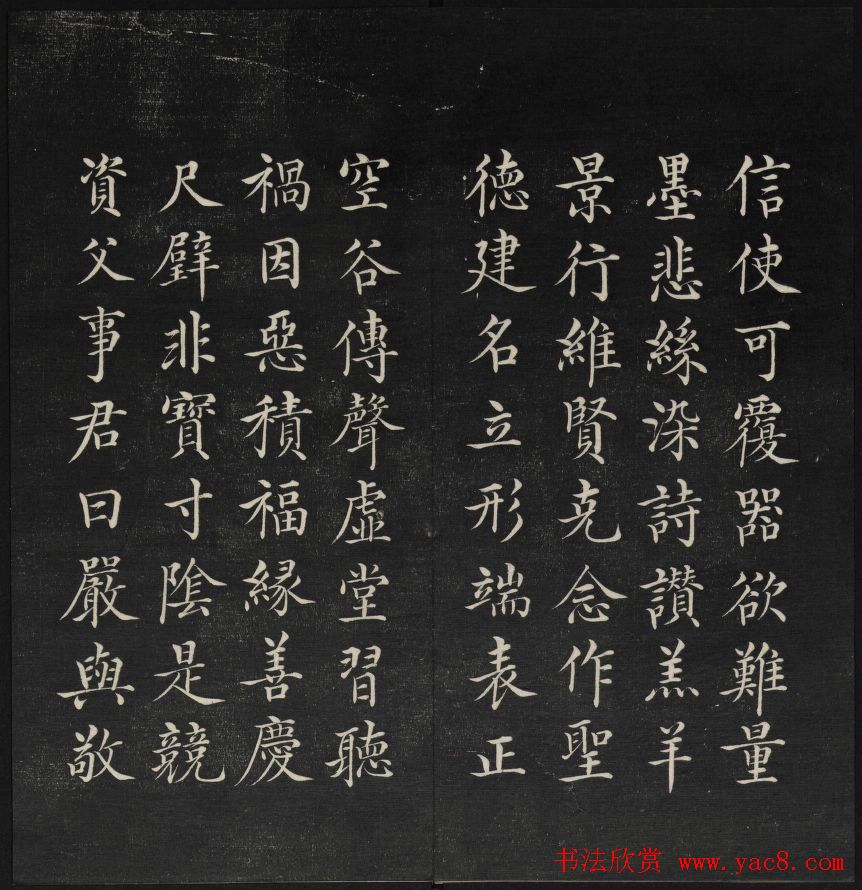 信使可覆器欲難量
墨悲絲染詩讚羔羊
景行維賢克念作聖
德建名立形端表正
空谷傳聲虛堂習聽
禍因惡積福緣善慶
尺璧非寶寸陰是競
資父事君曰嚴與敬
书法欣赏 www.yac8.com